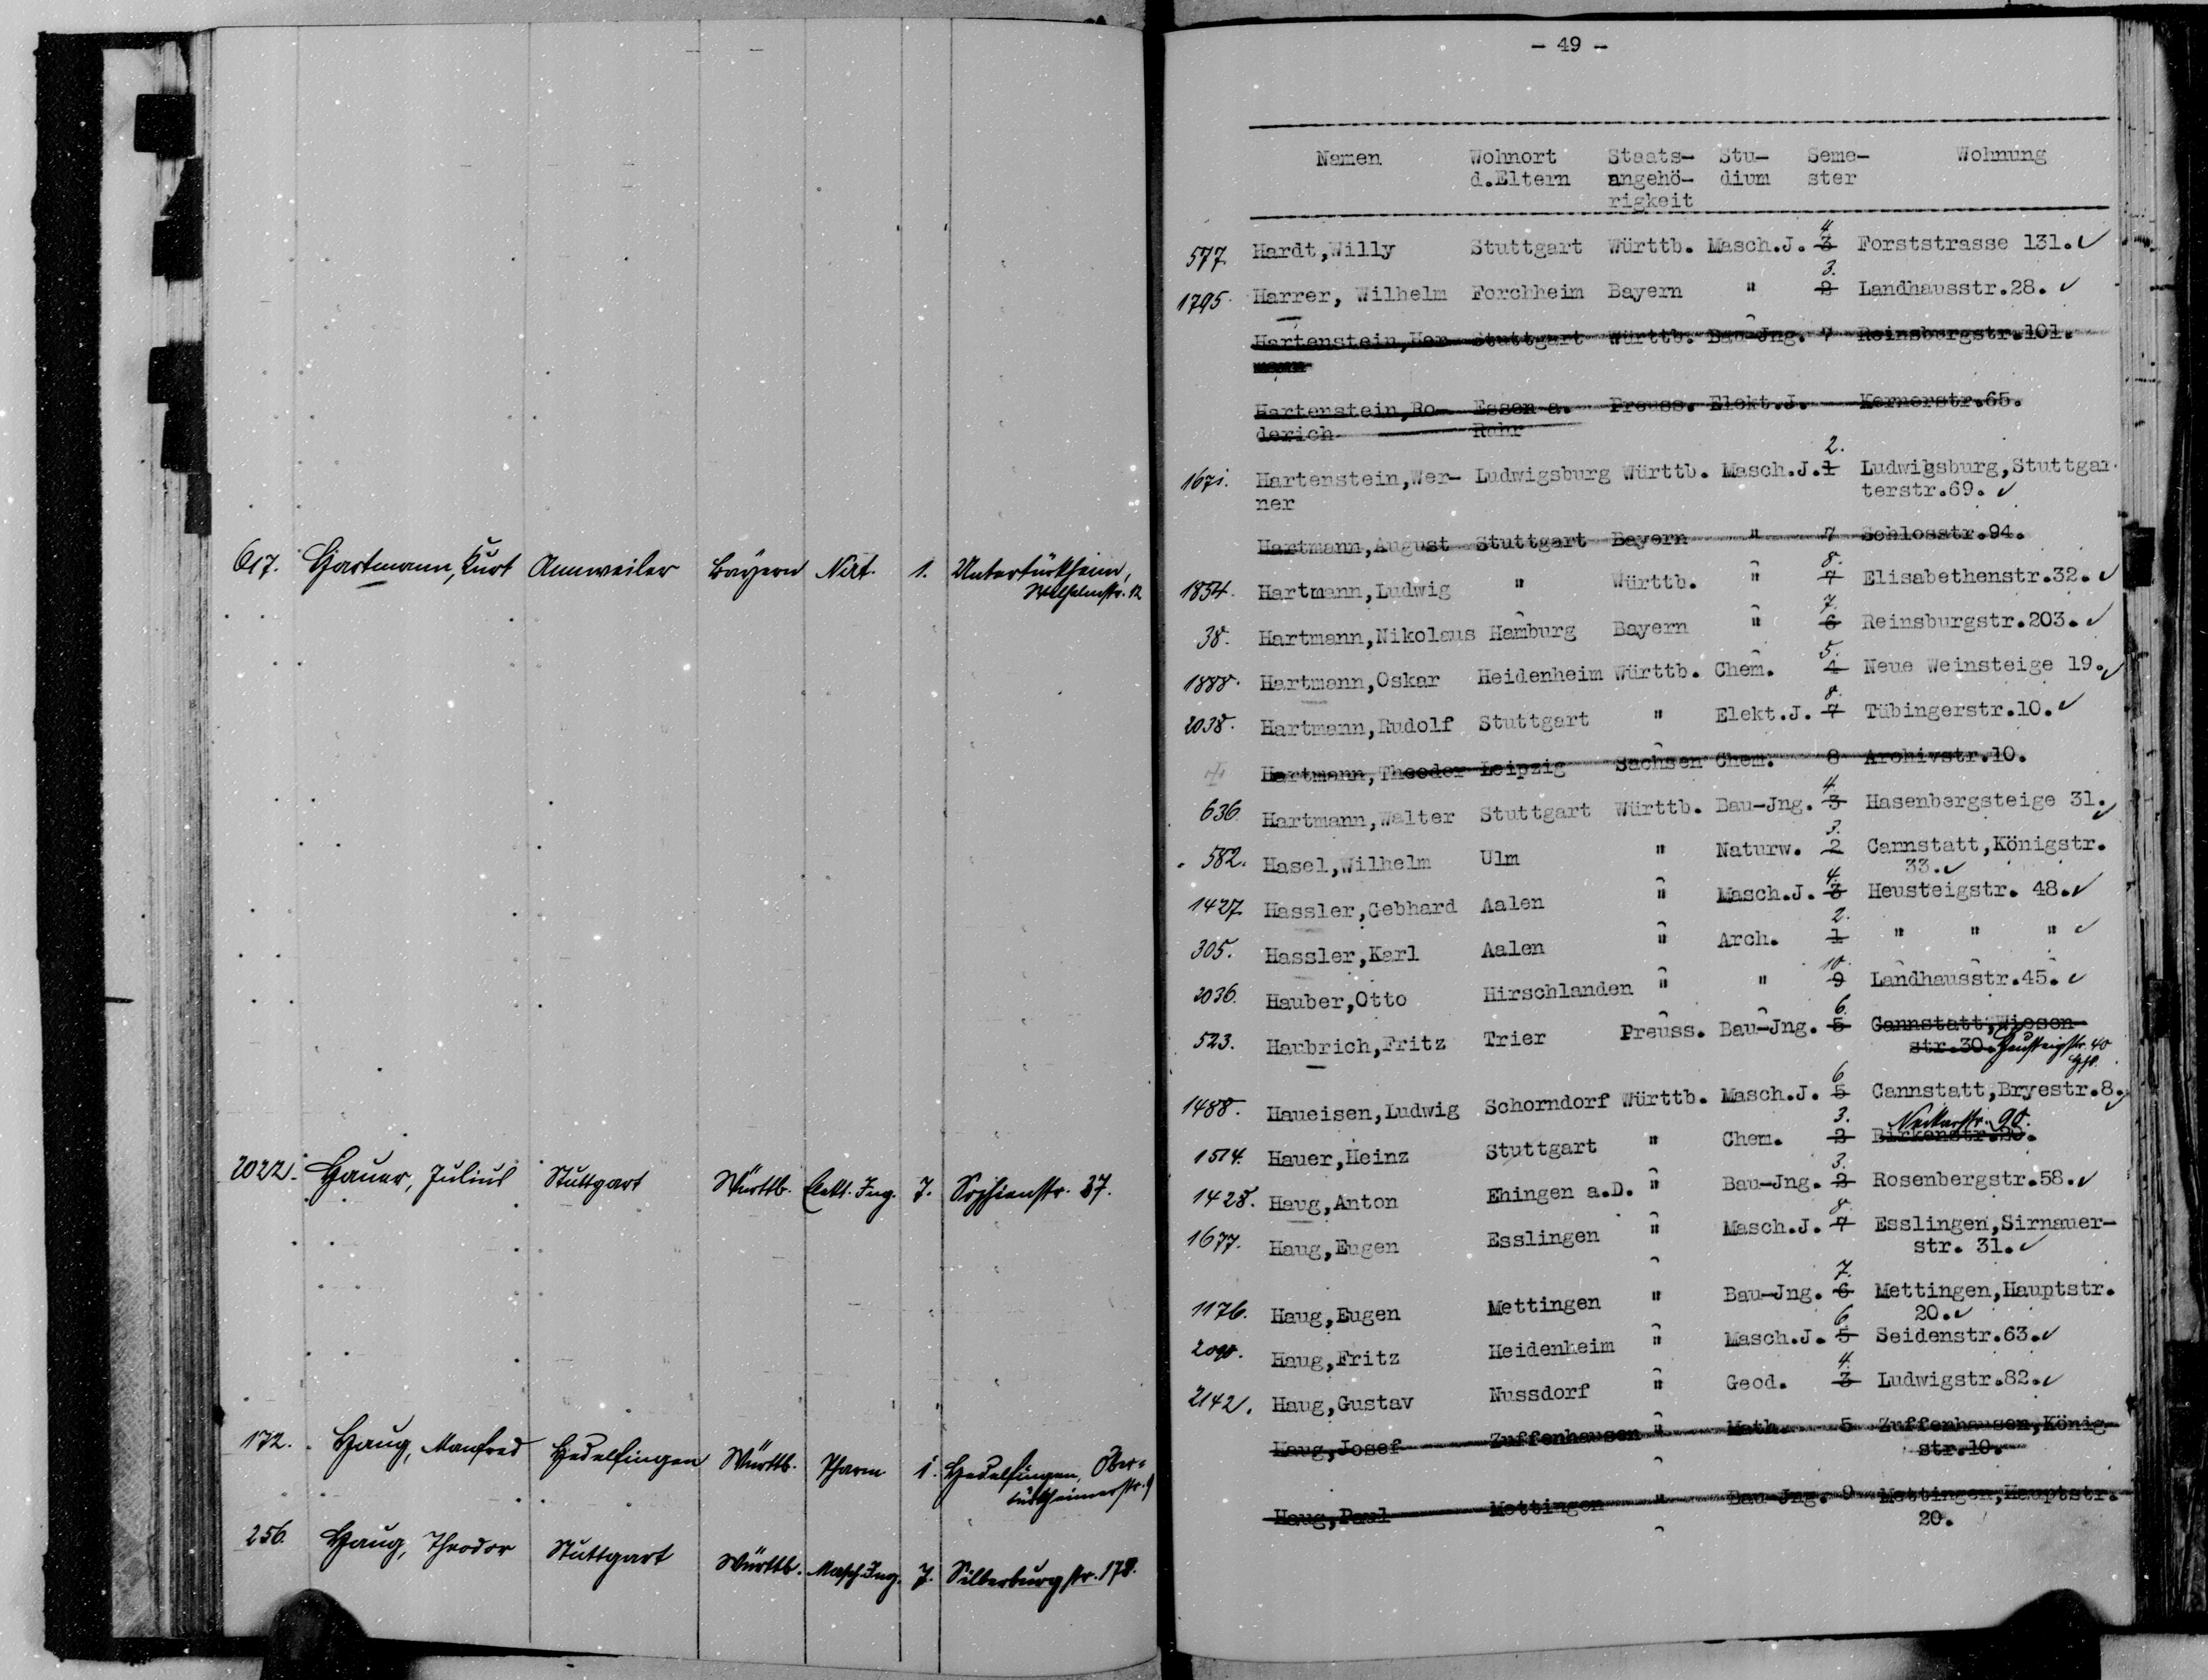 617. Hartmann, Kurt Annweiler Bayern Nat. 1. Untertürkheim,
Wilhelmstr. 12
2022. Hauer, Julius Stuttgart Württb. Elekt. Ing. 7. Sophienstr. 37.
172. Haug, Manfred Hedelfingen Württb. Pharm 1. Hedelfingen, Ober-
türkheimerstr. 9
256. Haug, Theodor Stuttgart Württb. Masch. Ing. 7. Silberburgstr. 178.
- 49 -
Namen Wohnort Staats- Stu- Seme- Wohnung
d.Eltern angehö- dium ster
rigkeit
577. Hardt,Willy Stuttgart Württb. Masch.J. 3 4 Forststrasse 131. ✓
1795. Harrer, Wilhelm Forchheim Bayern " 2 3. Landhausstr.28. ✓
Hartenstein,Her- Stuttgart Württb. Bau-Jng. 7 Reinsburgstr.101.
mann
Hartenstein,Ro- Essen a. Preuss. Elekt.J. Kernerstr.65.
derich Ruhr
1671. Hartenstein,Wer- Ludwigsburg Württb. Masch.J. 1 2. Ludwigsburg,Stuttgar-
ner terstr.69. ✓
Hartmann,August Stuttgart Bayern " 7 Schlosstr.94.
1854. Hartmann,Ludwig " Württb. " 7 8. Elisabethenstr.32. ✓
38. Hartmann,Nikolaus Hamburg Bayern " 6 7. Reinsburgstr.203. ✓
1888. Hartmann,Oskar Heidenheim Württb. Chem. 4 5. Neue Weinsteige 19. ✓
2038. Hartmann,Rudolf Stuttgart " Elekt.J. 7 8. Tübingerstr.10. ✓
Hartmann,Theodor Leipzig Sachsen Chem. 8 Archivstr.10.
636. Hartmann,Walter Stuttgart Württb. Bau-Jng. 3 4. Hasenbergsteige 31. ✓
582. Hasel,Wilhelm Ulm " Naturw. 2 3. Cannstatt,Königstr.
33. ✓
1427. Hassler,Gebhard Aalen " Masch.J. 3 4. Heusteigstr. 48. ✓
305. Hassler,Karl Aalen " Arch. 1 2. " " " ✓
2036. Hauber,Otto Hirschlanden " " 9 10. Landhausstr.45. ✓
523. Haubrich,Fritz Trier Preuss. Bau-Jng. 5 6. Cannstatt,Wiesen-
str.30. Heusteigstr. 40
1488. Haueisen,Ludwig Schorndorf Württb. Masch.J. 5 6 Cannstatt,Bryestr.8. ✓
Neckarstr. 98.
1514. Hauer,Heinz Stuttgart " Chem. 2 3. Birkenstr.20.
1428. Haug,Anton Ehingen a.D. " Bau-Jng. 2 3. Rosenbergstr.58. ✓
1677. Haug,Eugen Esslingen " Masch.J. 7 8. Esslingen,Sirnauer-
str. 31. ✓
1176. Haug,Eugen Mettingen " Bau-Jng. 6 7. Mettingen,Hauptstr.
20. ✓
Haug,Fritz Heidenheim " Masch.J. 5 6. Seidenstr.63. ✓
2142. Haug,Gustav Nussdorf " Geod. 3 4. Ludwigstr.82. ✓
Haug,Josef Zuffenhausen " Math. 5 Zuffenhausen,König-
str.10.
Haug,Paul Mettingen " Bau-Jng. 9 Mettingen,Hauptstr.
20.